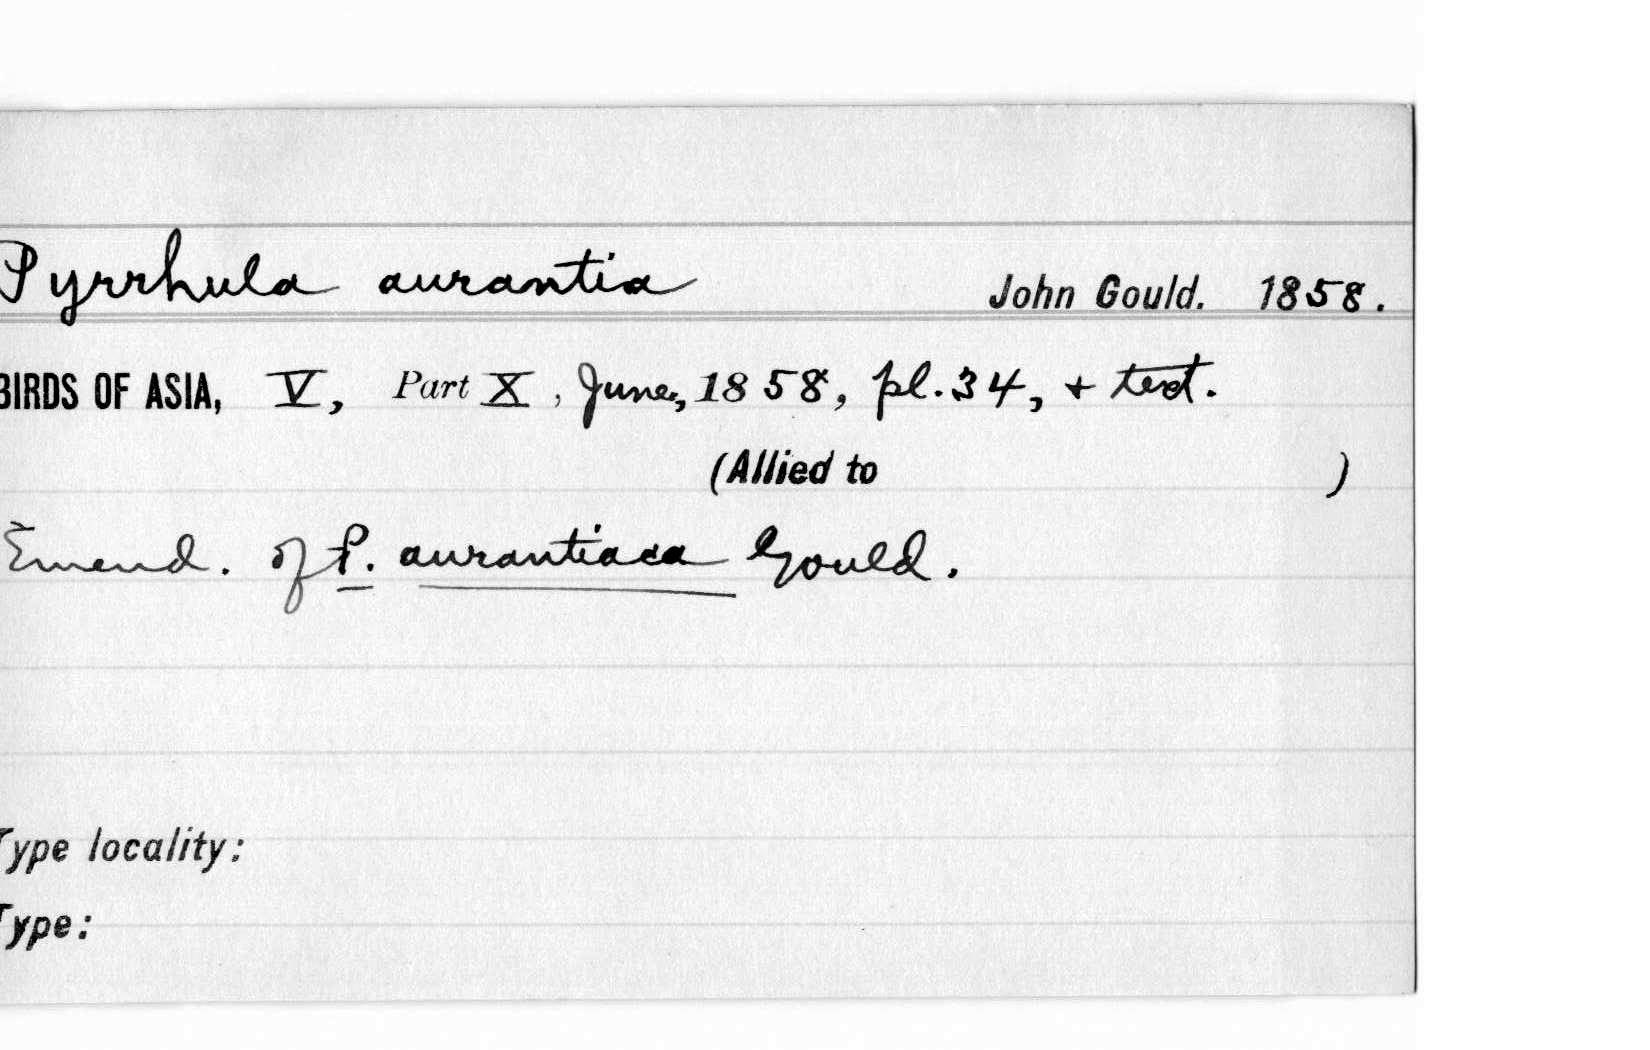 Pyrrhula aurantia John Gould. 1858.
BIRDS OF ASIA, V, Part X, June, 1858, pl. 34, + text.
(Allied to )
Emend. of P. aurantiaca Gould.
Type locality:
Type: